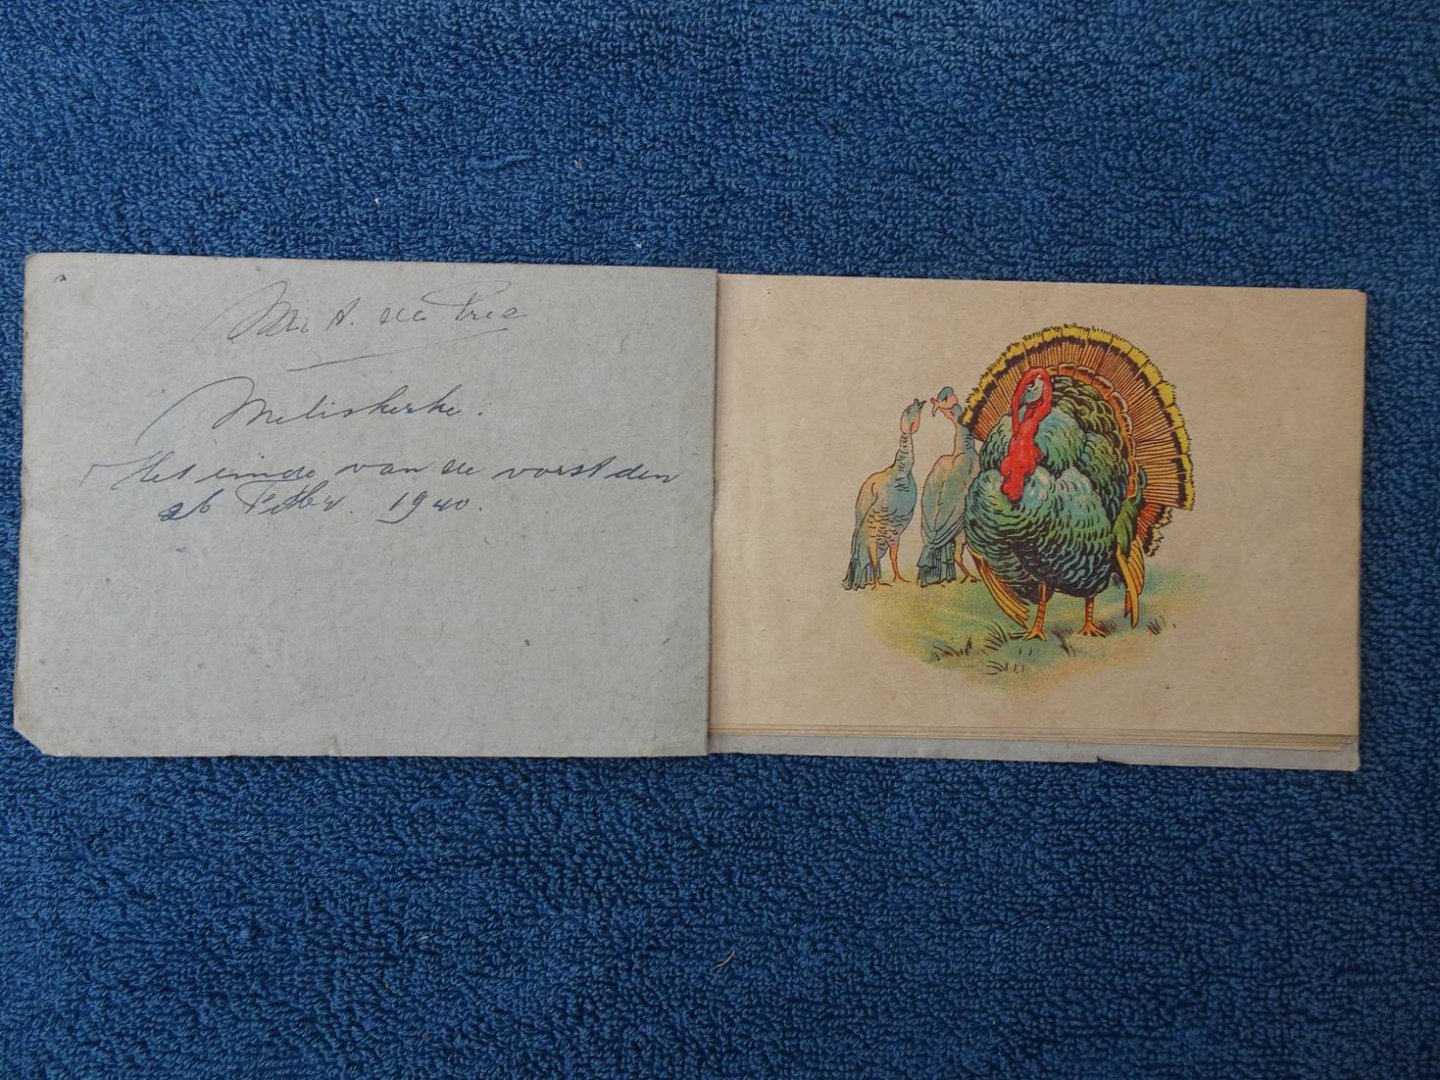 A. de Pree
Meliskerke.
Het einde van de vorst den
26 Febr. 1940.